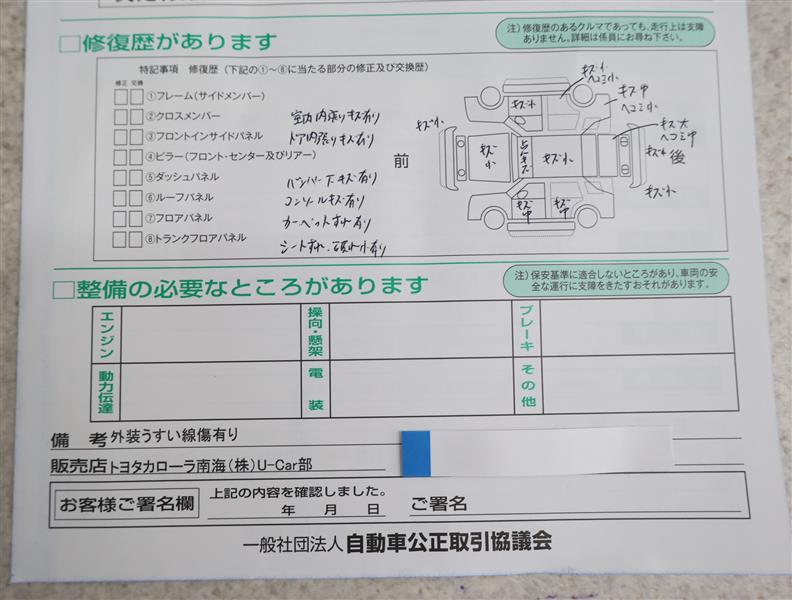 □修復歴があります
注）修復歴のあるクルマであっても、走行上は支障
ありません。詳細は係員にお尋ね下さい。
特記事項 修復歴（下記の①〜⑧に当たる部分の修正及び交換歴）
修正 交換
①フレーム（サイドメンバー）
②クロスメンバー 室内内張りキズ有り
③フロントインサイドパネル ドア内張りキズ有り
④ピラー（フロント・センター及びリアー）
⑤ダッシュパネル バンパー下キズ有り
⑥ルーフパネル コンソールキズ有り
⑦フロアパネル カーペットすれ有り
⑧トランクフロアパネル シートすれ・汚れ小有り
前
後
キズ小
キズ小
ヘコミ小
キズ中
ヘコミ小
キズ小
キズ大
ヘコミ中
キズ小
キズ小
キズ小
キズ小
キズ中
キズ中
□整備の必要なところがあります
注）保安基準に適合しないところがあり、車両の安
全な運行に支障をきたすおそれがあります。
エンジン
操向・懸架
ブレーキ
動力伝達
電装
その他
備 考 外装うすい線傷有り
販売店 トヨタカローラ南海（株）U-Car部
お客様ご署名欄
上記の内容を確認しました。
年 月 日
ご署名
一般社団法人 自動車公正取引協議会